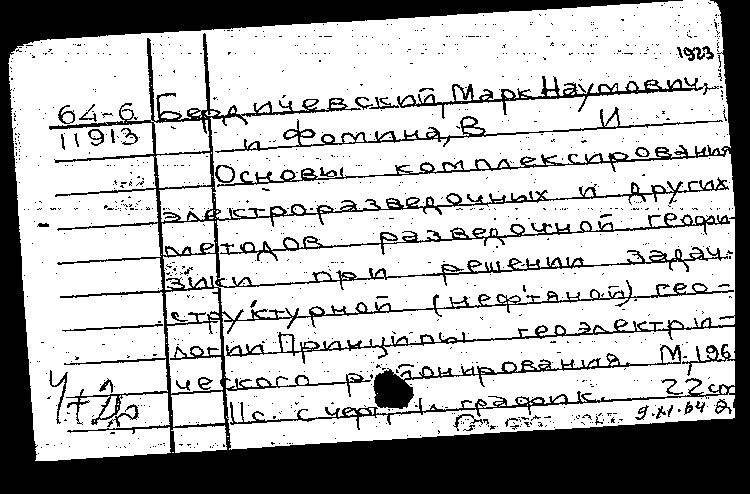 1923
64-6 Бердичевский, Марк Наумович,
11913 и Фомина, В И
Основы комплексирования
электроразведочных и других
методов разведочной геофи-
зики при решении задач
структурной (нефтяной) гео-
логии Принципы геоэлектри-
ческого районирования. М, 196
11с. с черт. и график. 22см
9.XI.64